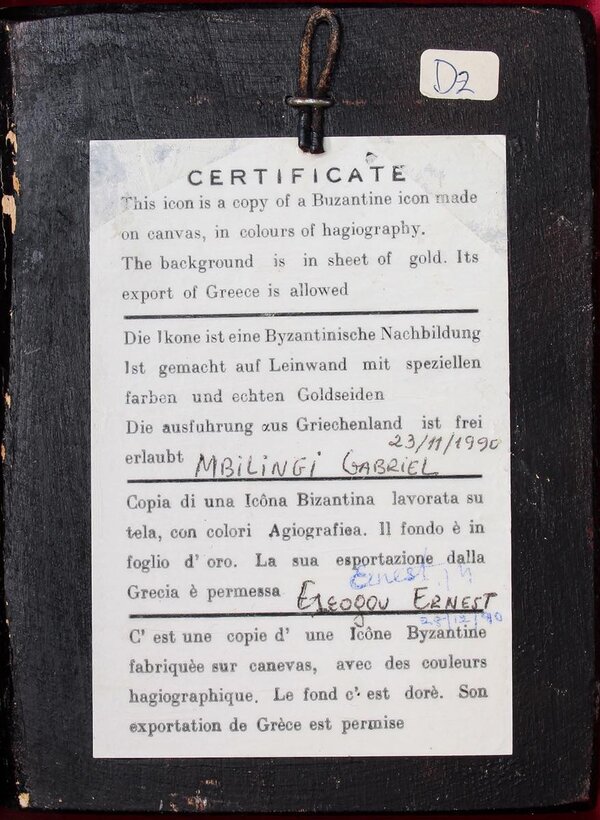 D2
CERTIFICATE
This icon is a copy of a Buzantine icon made
on canvas, in colours of hagiography.
The background is in sheet of gold. Its
export of Greece is allowed
Die Ikone ist eine Byzantinische Nachbildung
Ist gemacht auf Leinwand mit speziellen
farben und echten Goldseiden
Die ausfuhrung aus Griechenland ist frei
23/11/1990
erlaubt MBiLiNGi GABRIEL
Copia di una Icôna Bizantina lavorata su
tela, con colori Agiografica. Il fondo è in
foglio d' oro. La sua esportazione dalla
Ernest
Grecia è permessa ERNEST
23/12/90
C' est une copie d' une Icône Byzantine
fabriquèe sur canevas, avec des couleurs
hagiographique. Le fond c' est dorè. Son
exportation de Grèce est permise